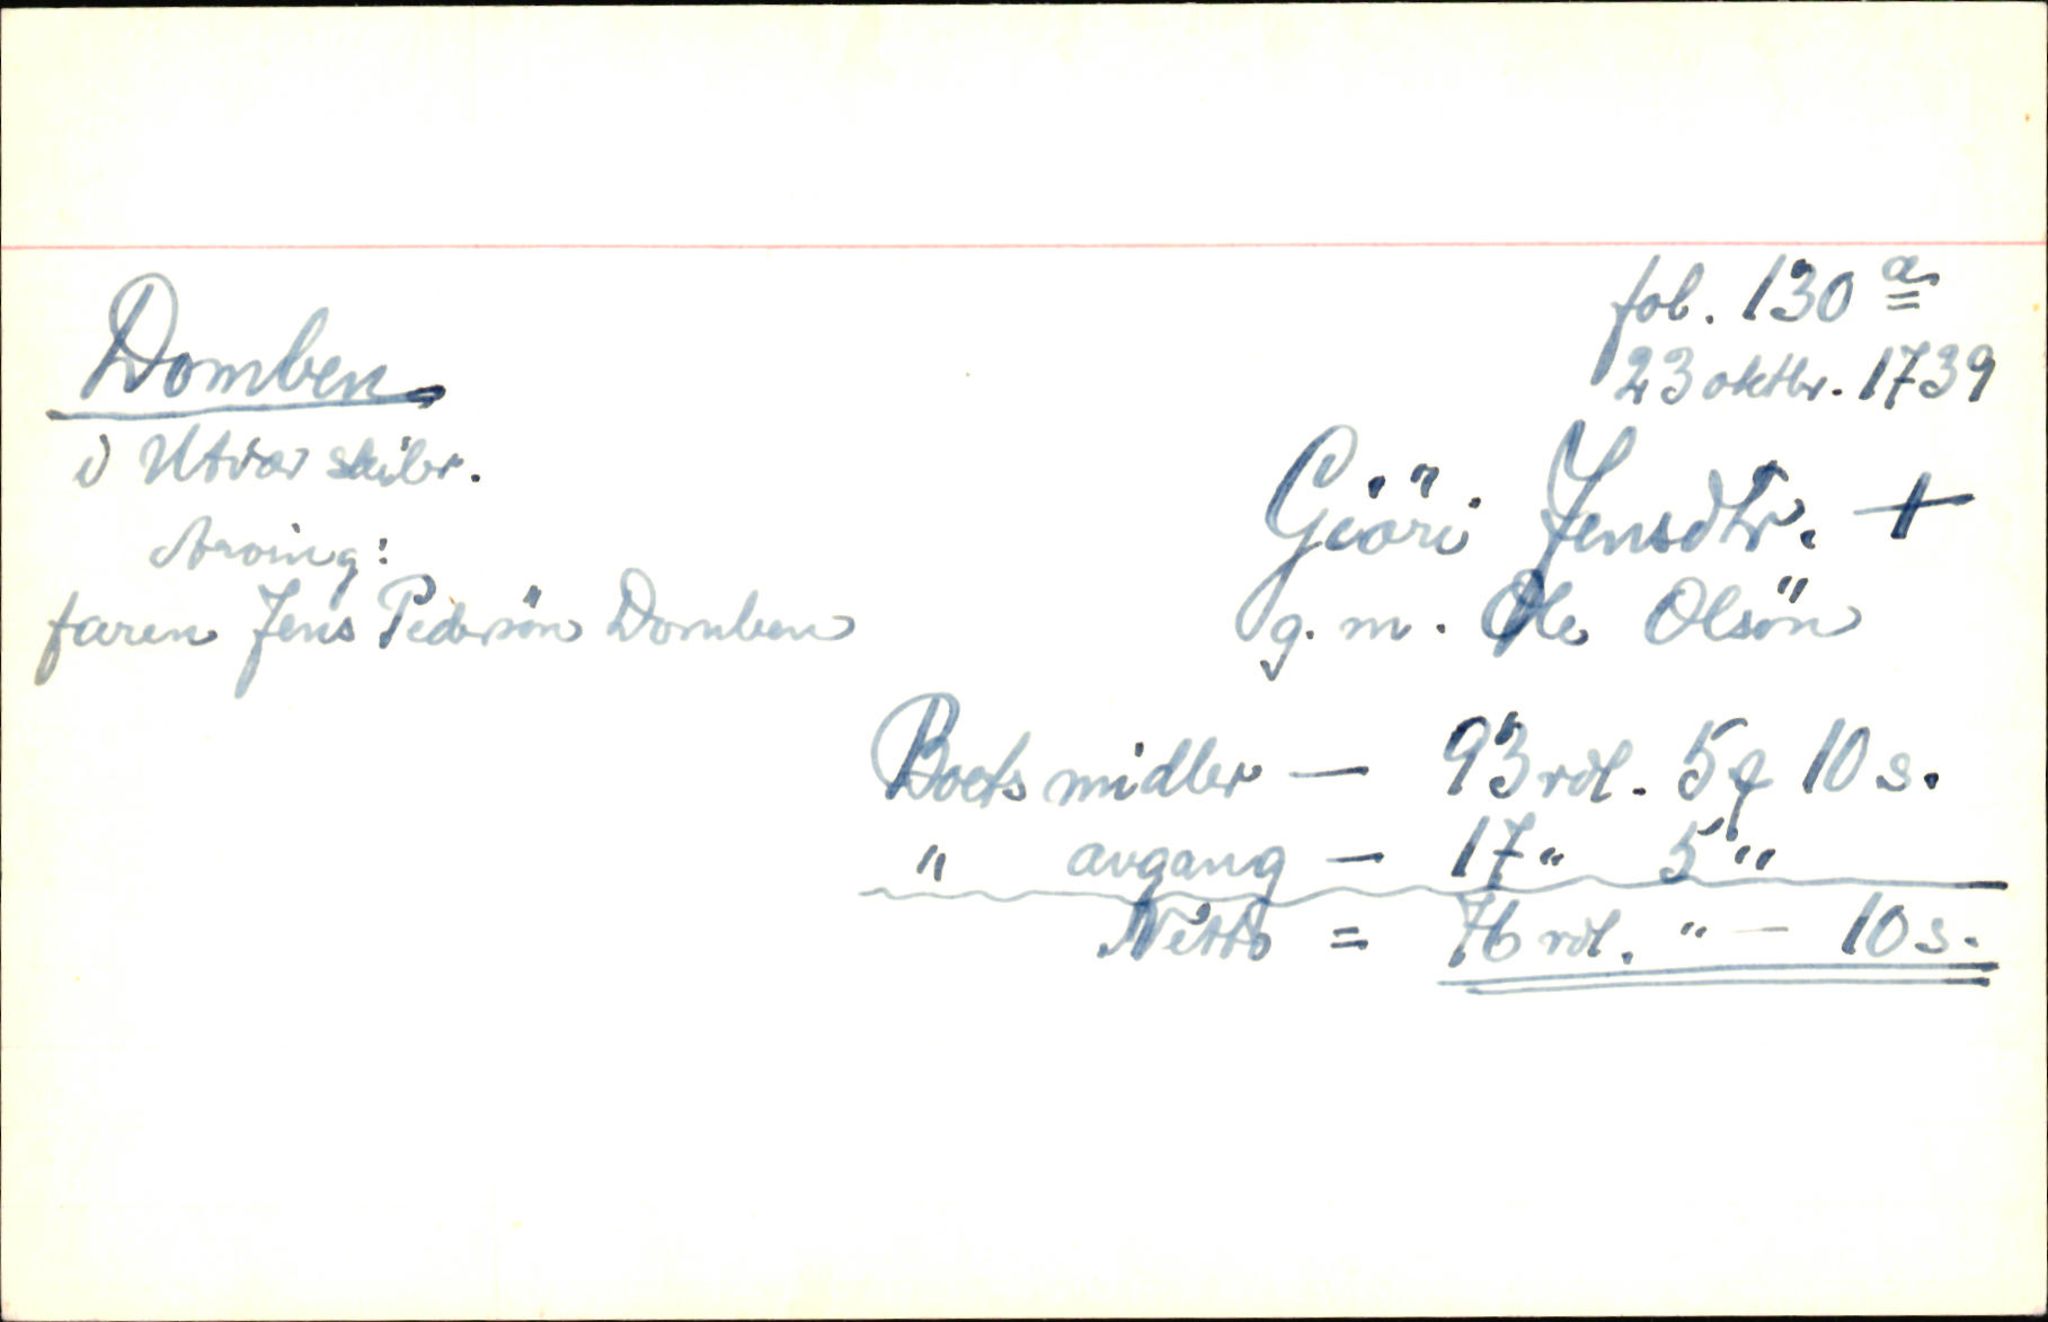 fol. 130 a
23 oktbr. 1739
Domben
i Utvær skibr.
Giöri Jensdtr. +
Arving:
g. m. Ole Olsön
faren Jens Pedersön Domben
Boets midler — 93 rdl. 5 q 10 s.
" avgang — 17 " 5 " "
Netto = 76 rdl. " — 10 s.